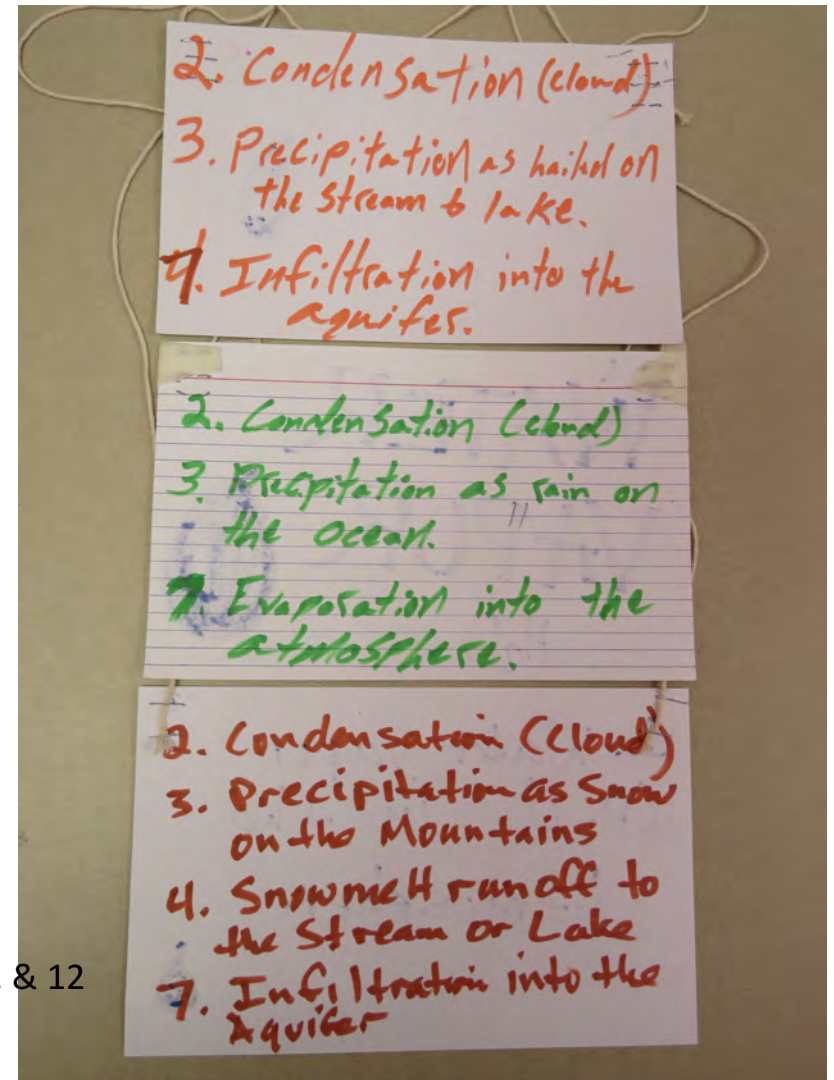 2. Condensation (cloud)
3. Precipitation as hailed on
the stream to lake.
4. Infiltration into the
aquifer.
2. Condensation (cloud)
3. Precipitation as rain on
the ocean.
7. Evaporation into the
atmosphere.
2. Condensation (Cloud)
3. Precipitation as Snow
on the Mountains
4. Snowmelt runoff to
the Stream or Lake
& 12
7. Infiltration into the
Aquifer